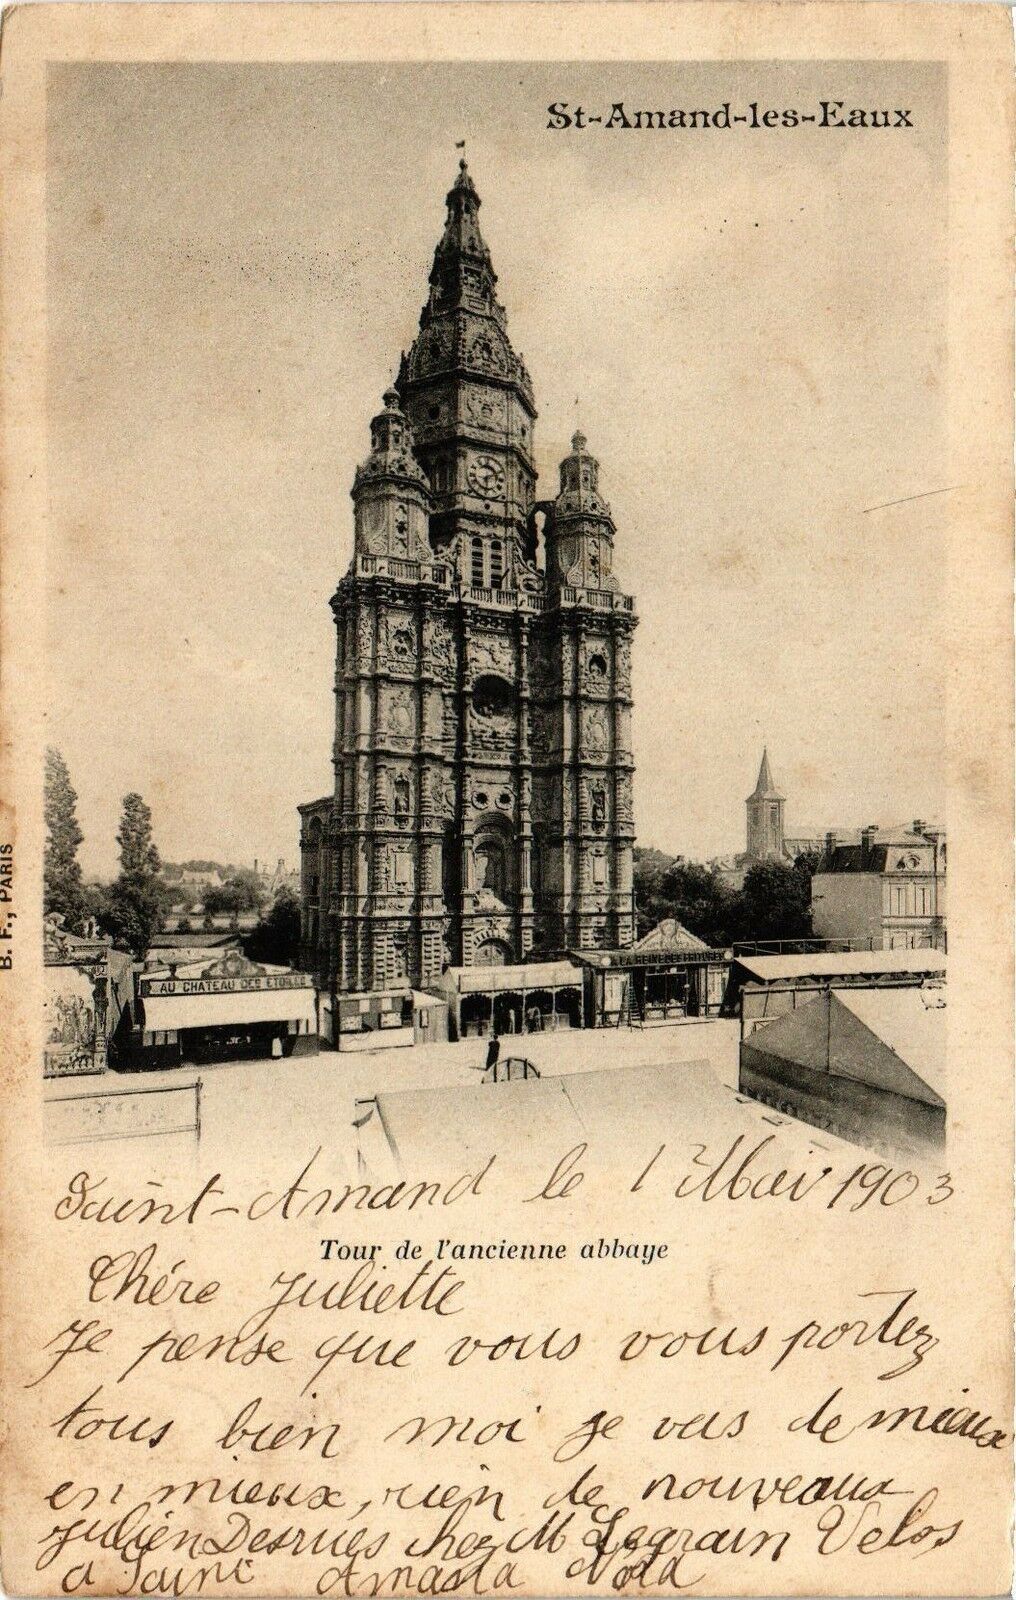 St-Amand-les-Eaux
B. F., PARIS
AU CHATEAU DES ETOILES
A LA REINE DES FRITURES
Saint-Amand le 1 Mai 1903
Tour de l'ancienne abbaye
Chére Juliette
Je pense que vous vous portez
tous bien moi je vas de mieux
en mieux, rien de nouveaux
Julien Desrues chez M Legrain Velos
a Saint Amand Nord